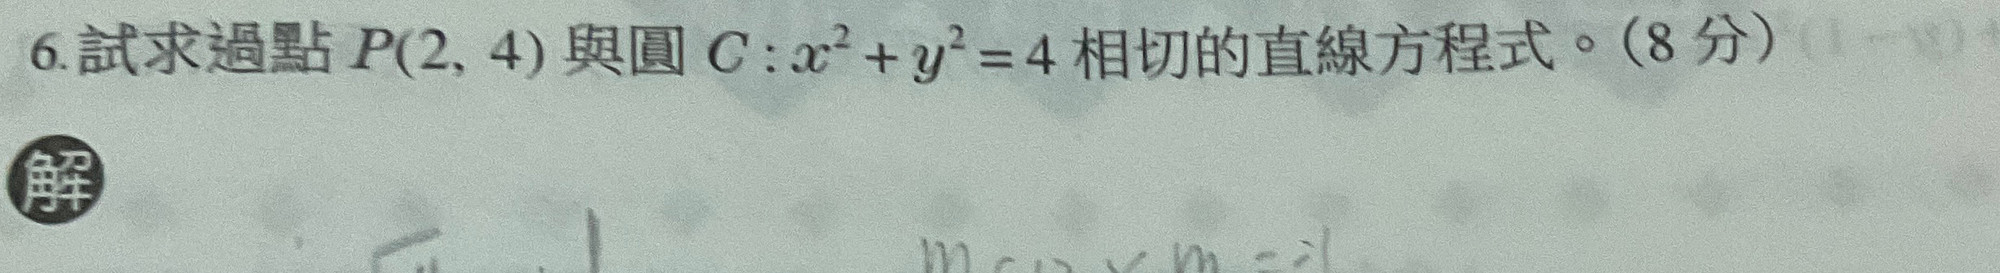 6.試求過點 P(2, 4) 與圓 C : x² + y² = 4 相切的直線方程式。(8 分)
解